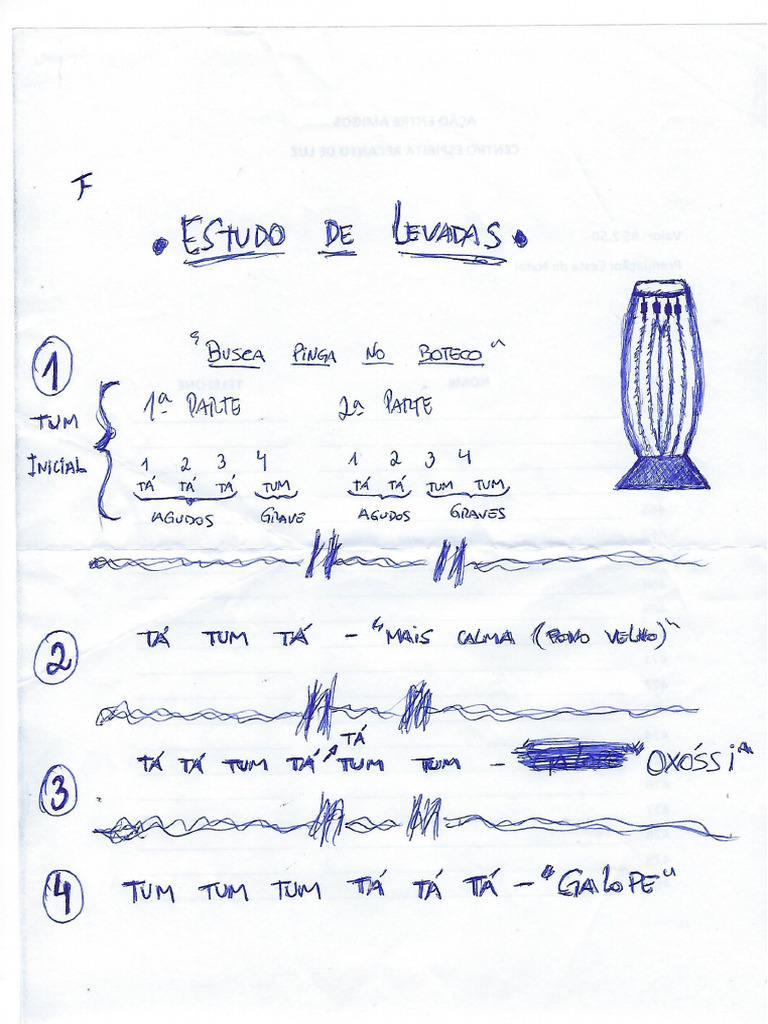 F
• ESTUDO DE LEVADAS •
1
"BUSCA PINGA NO BOTECO"
TUM INICIAL
1ª PARTE 2ª PARTE
1 2 3 4 1 2 3 4
TÁ TÁ TÁ TUM TÁ TÁ TUM TUM
AGUDOS GRAVE AGUDOS GRAVES
2 TÁ TUM TÁ - "MAIS CALMA (POVO VELHO)"
TÁ
3 TÁ TÁ TUM TÁ TUM TUM - OXÓSSI"
4 TUM TUM TUM TÁ TÁ TÁ - "GALOPE"